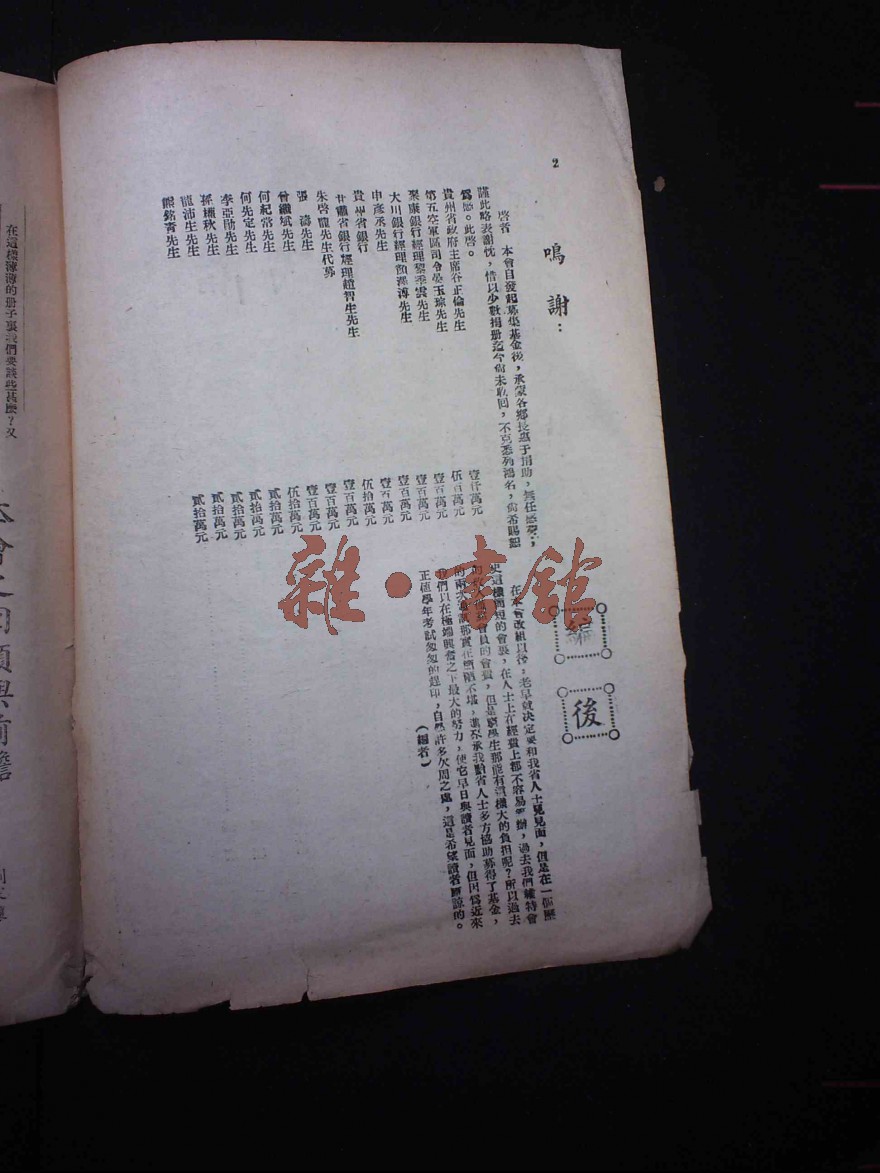 2
鳴謝：
啓者　本會自發起募集基金後，承蒙各鄉長惠于捐助，無任感
謹此略表謝忱，惜以少數捐册迄今尙未收回，不克悉列鴻名，尙希賜
爲。此啓。
貴州省政府主席谷正倫先生　壹仟萬元
第五空軍區司令晏玉琮先生　伍百萬元
聚康銀行經理黎季雲先生　壹百萬元
大川銀行經理　先生　壹百萬元
申彥丞先生　壹百萬元
貴州省銀行　壹百萬元
甘肅省銀行經理趙智生先生　伍拾萬元
朱啓龍先生代募　壹百萬元
張　濤先生　壹百萬元
曾　斌先生　壹百萬元
何紀常先生　伍拾萬元
何先定先生　貳拾萬元
李亞勛先生　貳拾萬元
孫　秋先生　貳拾萬元
龍沛生先生　貳拾萬元
熊銘靑先生　貳拾萬元
編後
在本會改組以後，老早就决定要和我省人士見見面，但是在一個歷
史這樣　短的會裏，在人士上在經費上都不容易　辦，過去我們　特會
的收入　會員的會費，但是窮學生那能有這樣大的負担呢？所以過去
的兩次　實在　不堪，　承我黔省人士多方協助募得了基金，
我們以在極端興奮之下最大的努力，使它早日與讀者見面，但因爲近來
正値學年考試匆匆的趕印，自　許多欠周之處，這是希望讀者原諒的。
（編者）
在這樣薄薄的册子裏我們要談些甚麽？又
本會之回顧與前瞻
雜·書館